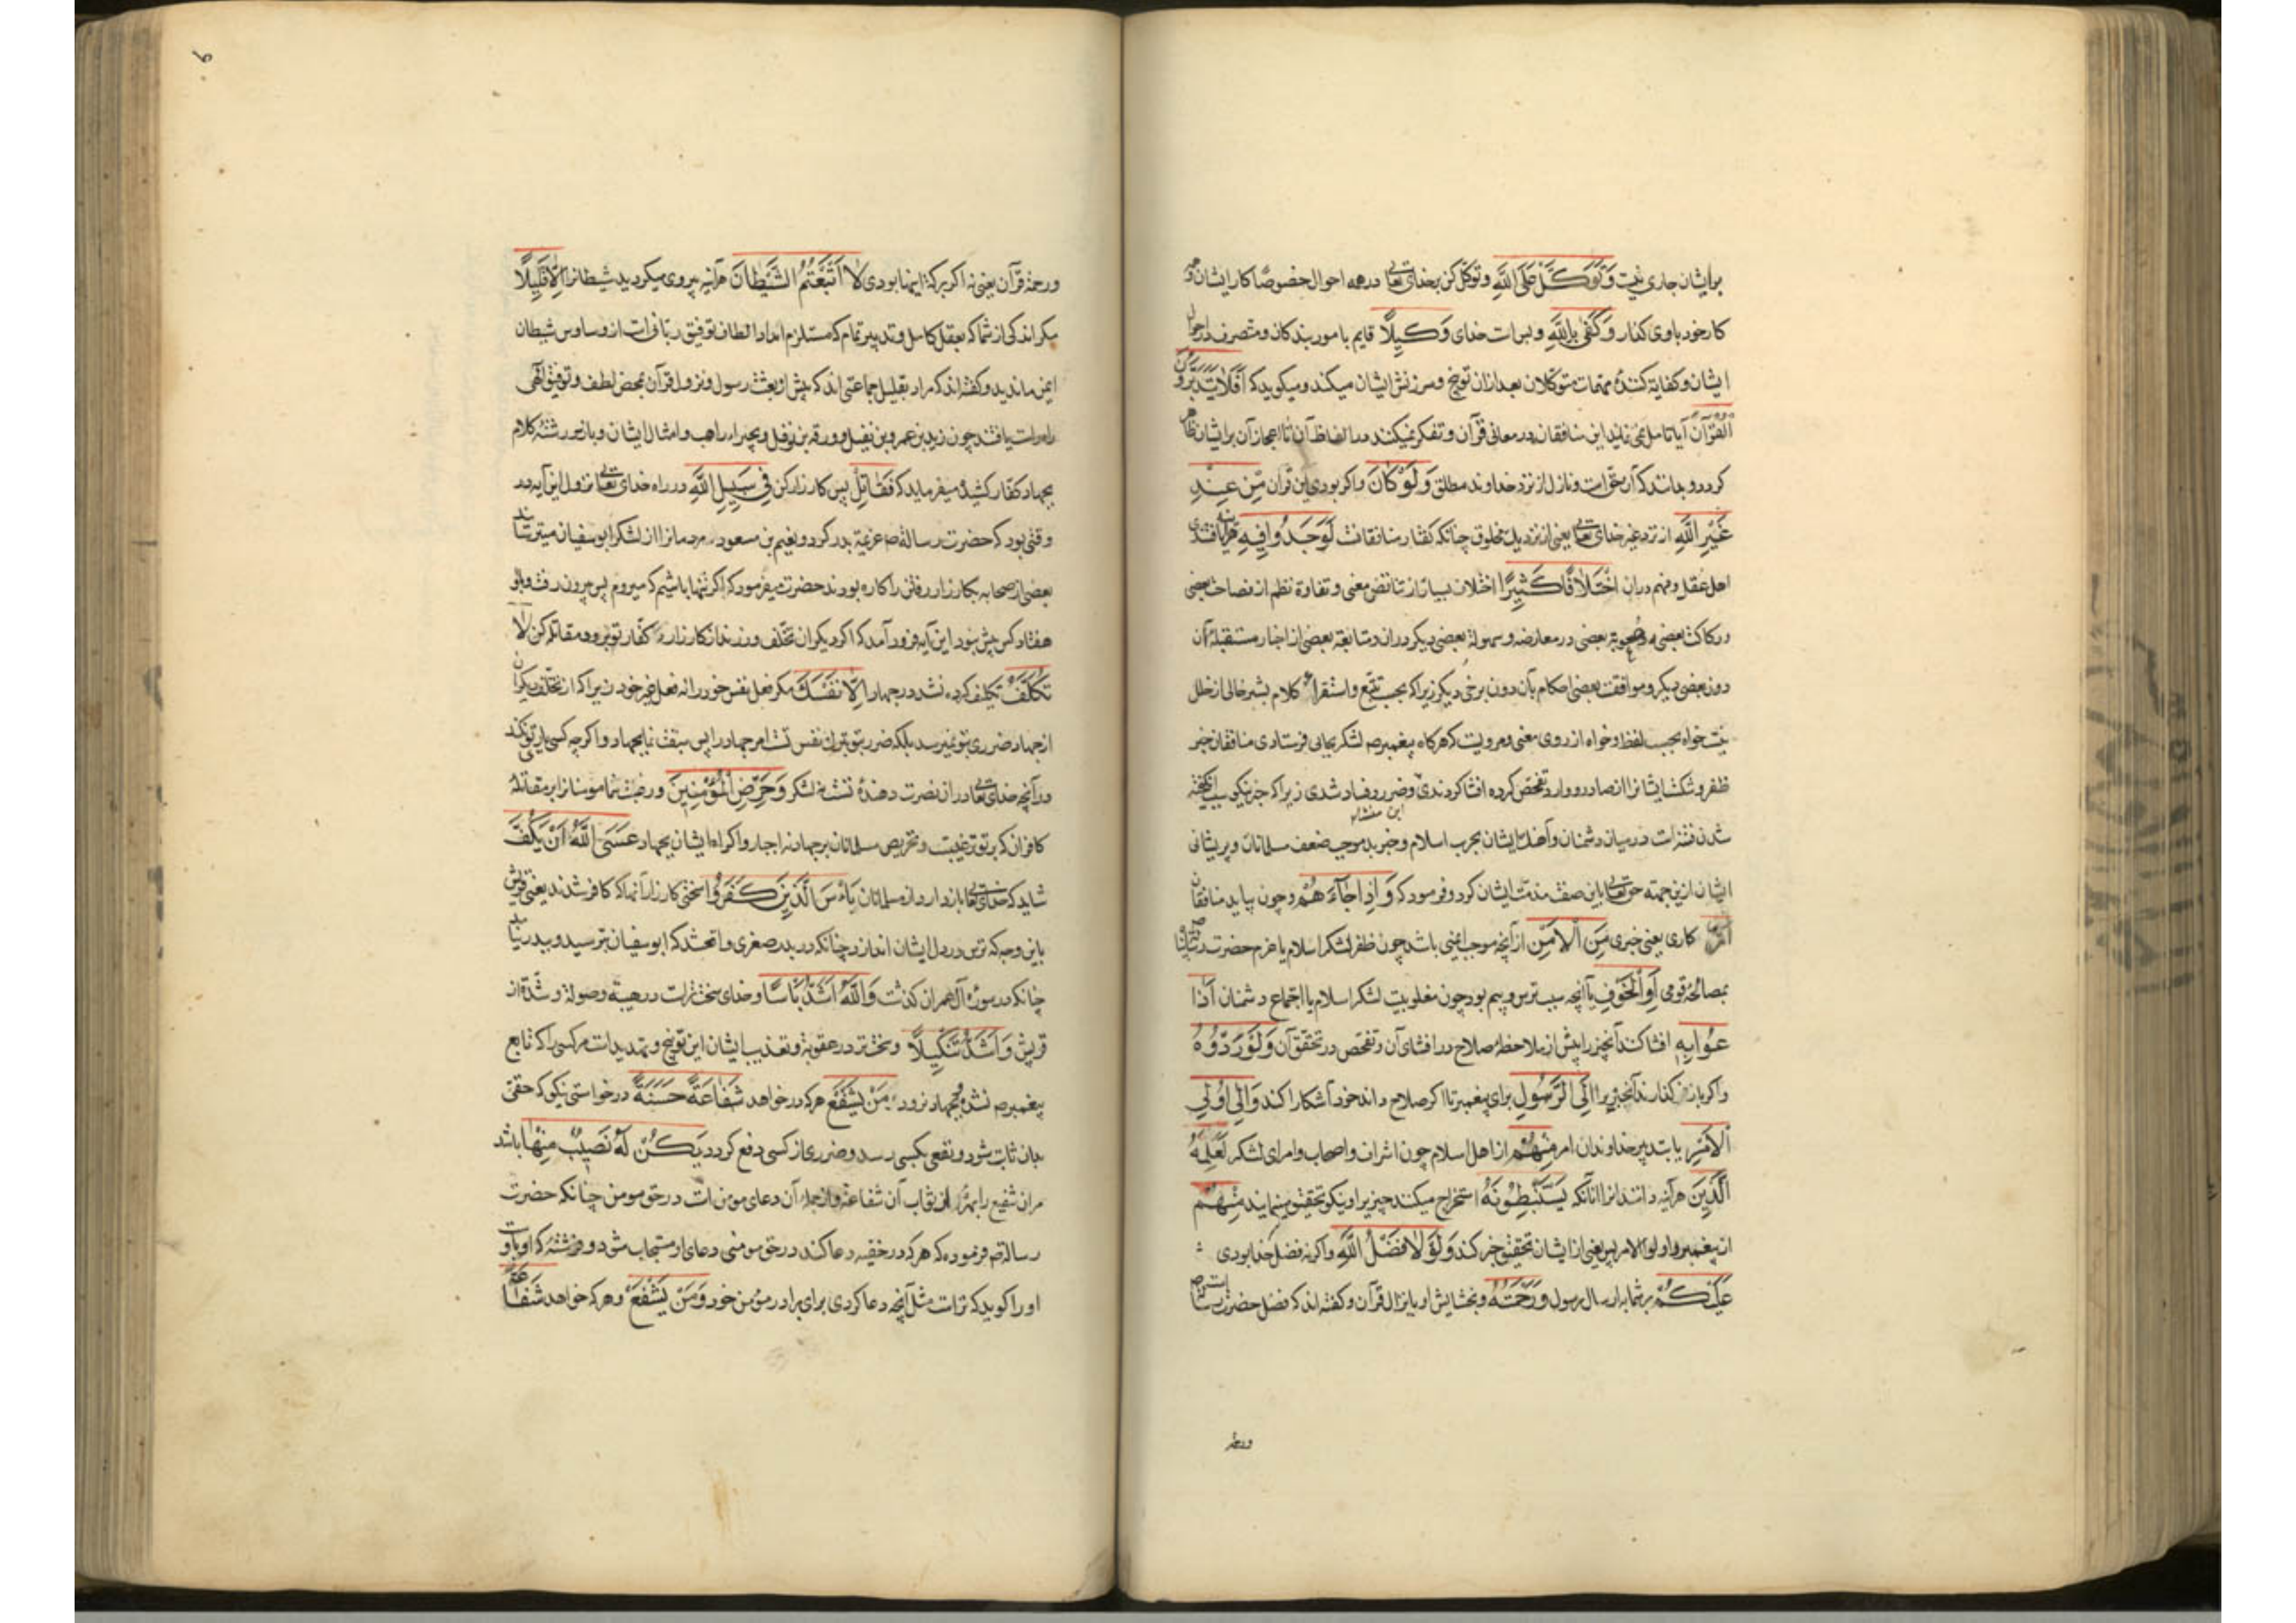 برایشان جاری نیست وَتَوَكَّلْ عَلَى اللَّهِ وتوکل کن بخدای تعالی در همه احوال خصوصا کار ایشان
کار خود باوی کذار وَكَفَىٰ بِاللَّهِ وبس است خدای وَكِيلًا قایم بامور بندکان ومتصرف در احوال
ایشان وکفایة کنندهٔ مهمات متوکلان بعد ازان توبیخ وسرزنش ایشان میکند ومیکوید که أَفَلَا يَتَدَبَّرُونَ
الْقُرْآنَ آیا تامل نمی نمایند این منافقان در معانی قرآن وتفکر نمیکنند در الفاظ آن تا اعجاز آن برایشان ظاهر
کردد وبدانند که آن حق است ونازل از نزد خداوند مطلق وَلَوْ كَانَ واکر بودی این قرآن مِنْ عِنْدِ
غَيْرِ اللَّهِ از نزد غیر خدای تعالی یعنی از نزدیک مخلوق چنانکه کفتار منافقانست لَوَجَدُوا فِيهِ هرآینه یافتندی
اهل عقل وفهم دران اخْتِلَافًا كَثِيرًا اختلاف بسیار از تناقض معنی وتفاوة نظم از فصاحت بعضی
ورکاکت بعضی وصعوبة بعضی در معارضه وسهولة بعضی دیکر دران ومتابعة بعضی از اخبار مستقبله آن
دون بعضی دیکر وموافقت بعضی احکام بآن دون برخی دیکر زیرا که بحسب تتبع واستقراء کلام بشر خالی از خلل
نیست خواه بحسب لفظ وخواه از روی معنی ومرویست که هرکاه پیغمبرص لشکر بجایی فرستادی منافقان خبر
ظفر وشکست ایشانرا از صادر ووارد تفحص کرده افشا کردندی وضرر وفساد شدی زیرا که خبر نیکو سبب انکیخته
شدن فتنه است در میان دشمنان وآهنک ایشان بحرب اسلام وخبر بد موجب ضعف مسلمانان وپریشانی
این منشاء
ایشان ازین جهته حق تعالی باین صفت مذمت ایشان کرد وفرمود که وَإِذَا جَاءَهُمْ وچون بیاید منافقان
أَمْرٌ کاری یعنی خبری مِنَ الْأَمْنِ از آنچه موجب ایمنی باشد چون ظفر لشکر اسلام یا عزم حضرت رسالت
بمصالحهٔ قومی أَوِ الْخَوْفِ یا آنچه سبب ترس وبیم بود چون مغلوبیت لشکر اسلام یا اجتماع دشمنان أَذَا
عُوا بِهِ افشا کنند آنچیز را پیش از ملاحظهٔ صلاح در افشای آن وتفحص در تحقق آن وَلَوْ رَدُّوهُ
واکر باز کذارند آنچیز را إِلَى الرَّسُولِ برای پیغمبر تا اکر صلاح داند خود آشکارا کند وَإِلَىٰ أُولِي
الْأَمْرِ یا بتدبیر خداوندان امر مِنْهُمْ از اهل اسلام چون اشراف واصحاب وامرای لشکر لَعَلِمَهُ
الَّذِينَ هرآینه دانند انرا آنانکه يَسْتَنْبِطُونَهُ استخراج میکنند چیزیرا ونیکو تحقیق مینمایند مِنْهُمْ
از پیغمبر واولو الامر پس یعنی از ایشان تحقیق خبر کنند وَلَوْلَا فَضْلُ اللَّهِ واکر نه فضل خدا بودی
عَلَيْكُمْ برشما بارسال رسول وَرَحْمَتُهُ وبخشایش او بانزال قرآن وکفته اند که فضل حضرت رسالت
ورحمة
ورحمة قرآن یعنی نه اکر برکه اینها بودی لَاتَّبَعْتُمُ الشَّيْطَانَ هرآینه پیروی میکردید شیطانرا إِلَّا قَلِيلًا
مکر اندکی از شما که بعقل کامل وتدبیر تمام که مستلزم امداد الطاف توفیق ربانی است از وساوس شیطان
ایمن ماندید وکفته اند که مراد بقلیل جماعتی اند که پیش از بعثت رسول ونزول قرآن بمحض لطف وتوفیق الهی
راه راست یافتند چون زید بن عمرو بن نفیل وورقه بن نوفل وبحیراء راهب وامثال ایشان وباز سر رشتهٔ کلام
بجهاد کفار کشیده میفرماید که فَقَاتِلْ پس کارزار کن فِي سَبِيلِ اللَّهِ در راه خدای تعالی نزول این آیه در
وقتی بود که حضرت رسالةص عزیمة بدر کرد ونعیم بن مسعود مردمانرا از لشکر ابوسفیان میترسانید
بعضی از صحابه بکارزار رفتن را کاره بودند حضرت میفرمود که اکر تنها باشیم که میروم پس بیرون رفت وبا او
هفتاد کس بیش نبود این آیه فرود آمد که اکر دیکران تخلف ورزند از کارزار کفار تو برو ومقاتله کن لَا
تُكَلَّفُ تکلیف کرده نشد در جهاد إِلَّا نَفْسَكَ مکر فعل نفس خود را نه فعل غیر خود زیرا که از تخلف دیکران
از جهاد ضرری بتو نمیرسد بلکه ضرر بتو بترک نفس تست امر جهاد را پس سبقت نما بجهاد واکرچه کسی یاری تو نکند
ورآنچه خدای تعالی در ان نصرت دهندهٔ تست نه لشکر وَحَرِّضِ الْمُؤْمِنِينَ ورغبت نما مومنانرا بر مقاتلهٔ
کافران که بر تو ترغیبست وتحریص مسلمانان بر جهاد نه اجبار واکراه ایشان بجهاد عَسَى اللَّهُ أَنْ يَكُفَّ
شاید که خدای تعالی باز دارد از مسلمانان بَأْسَ الَّذِينَ كَفَرُوا سختی کارزار آنها که کافر شدند یعنی قریش
باین وجه که ترس در دل ایشان اندازد چنانکه در بدر صغری واقع شد که ابوسفیان بترسید وببدر نیامد
چنانکه در سورهٔ آل عمران کذشت وَاللَّهُ أَشَدُّ بَأْسًا وخدای سخت تر است در هیبة وصولة وشدة از
قریش وَأَشَدُّ تَنْكِيلًا وسخت تر در عقوبة وتعذیب ایشان این توبیخ وتهدید است مرکسی را که تابع
پیغمبرص نشده بجهاد نرود مَنْ يَشْفَعْ هرکه درخواهد شَفَاعَةً حَسَنَةً درخواستی نیکو که حقی
بدان ثابت شود ونفعی بکسی رسد وضرری از کسی دفع کردد يَكُنْ لَهُ نَصِيبٌ مِنْهَا باشد
مران شفیع را بهرهٔ از ثواب آن شفاعة وازجملهٔ آن دعای مومن است در حق مومن چنانکه حضرت
رسالةص فرموده که هرکه در خفیه دعا کند در حق مومنی دعای او مستجاب شود وفرشتهٔ که با اوست
او را کوید که تراست مثل آنچه دعا کردی برای برادر مؤمن خود وَمَنْ يَشْفَعْ وهرکه خواهد شَفَاعَةً